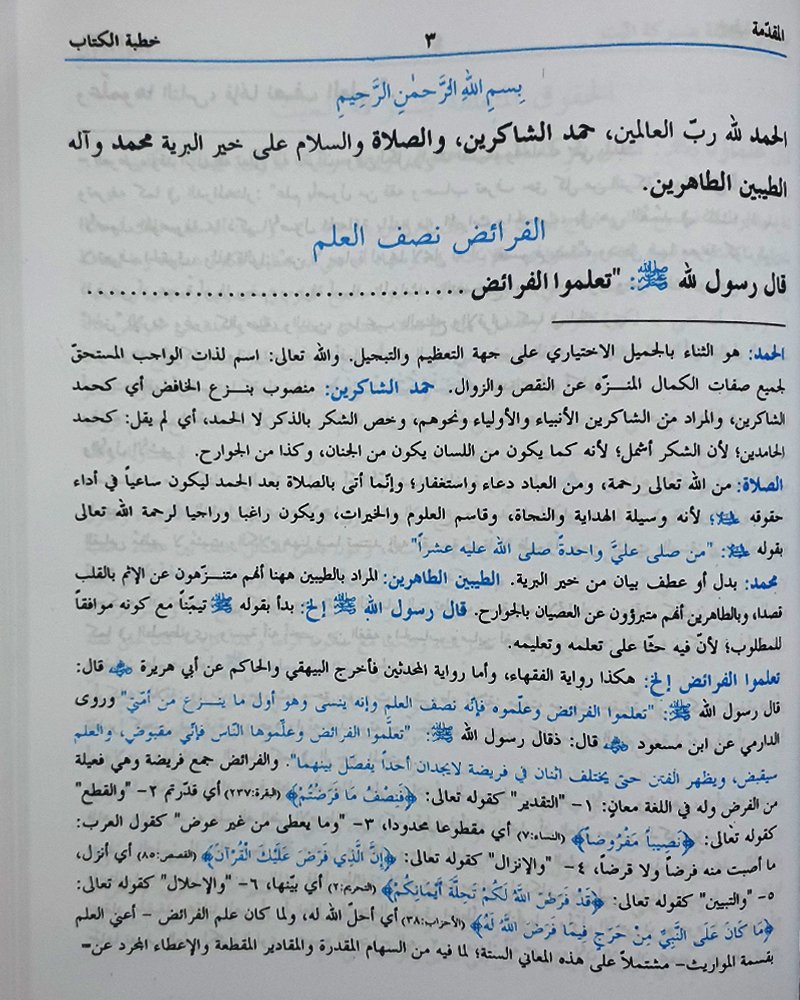 المقدّمة ٣ خطبة الكتاب
بِسمِ اللهِ الرَّحمٰنِ الرَّحِيمِ
الحمد لله ربّ العالمين، حمد الشاكرين، والصلاة والسلام على خير البرية محمد وآله
الطيبين الطاهرين.
الفرائض نصف العلم
قال رسول لله ﷺ: "تعلموا الفرائض ................................
الحمد: هو الثناء بالجميل الاختياري على جهة التعظيم والتبجيل. والله تعالى: اسم لذات الواجب المستحقّ
لجميع صفات الكمال المنـزّه عن النقص والزوال. حمد الشاكرين: منصوب بنـزع الخافض أي كحمد
الشاكرين، والمراد من الشاكرين الأنبياء والأولياء ونحوهم، وخص الشكر بالذكر لا الحمد، أي لم يقل: كحمد
الحامدين؛ لأن الشكر أشمل؛ لأنه كما يكون من اللسان يكون من الجنان، وكذا من الجوارح.
الصلاة: من الله تعالى رحمة، ومن العباد دعاء واستغفار؛ وإنّما أتى بالصلاة بعد الحمد ليكون ساعياً في أداء
حقوقه ﷺ؛ لأنه وسيلة الهداية والنجاة، وقاسم العلوم والخيرات، ويكون راغبا وراجيا لرحمة الله تعالى
بقوله ﷺ: "من صلى عليَّ واحدةً صلى الله عليه عشراً"
محمد: بدل أو عطف بيان من خير البرية. الطيبين الطاهرين: المراد بالطيبين ههنا أنهم متنـزّهون عن الإثم بالقلب
قصدا، وبالطاهرين أنهم متبرؤون عن العصيان بالجوارح. قال رسول الله ﷺ إلخ: بدأ بقوله ﷺ تيمّناً مع كونه موافقاً
للمطلوب؛ لأنّ فيه حثّا على تعلمه وتعليمه.
تعلموا الفرائض إلخ: هكذا رواية الفقهاء، وأما رواية المحدثين فأخرج البيهقي والحاكم عن أبي هريرة ﷺ قال:
قال رسول الله ﷺ: "تعلموا الفرائض وعلّموه فإنّه نصف العلم وإنه ينسى وهو أول ما ينـزع من أمّتي" وروى
الدارمي عن ابن مسعود قال: ذقال رسول الله ﷺ: "تعلَّموا الفرائض وعلّموها النّاس فإنّي مقبوض، والعلم
سيقبض، ويظهر الفتن حتى يختلف اثنان في فريضة لايجدان أحداً يفصّل بينهما". والفرائض جمع فريضة وهي فعيلة
من الفرض وله في اللغة معانٍ: ١- "التقدير" كقوله تعالى: ﴿فَنِصْفُ مَا فَرَضْتُمْ﴾ (البقرة:٢٣٧) أي قدّرتم ٢- "والقطع"
كقوله تعالى: ﴿نَصِيباً مَفْرُوضاً﴾ (النساء:٧) أي مقطوعا محدودا، ٣- "وما يعطى من غير عوض" كقول العرب:
ما أصبت منه فرضاً ولا قرضاً، ٤- "والإنزال" كقوله تعالى: ﴿إِنَّ الَّذِي فَرَضَ عَلَيْكَ الْقُرْآنَ﴾ (القصص:٨٥) أي أنزل،
٥- "والتبيين" كقوله تعالى: ﴿قَدْ فَرَضَ اللَّهُ لَكُمْ تَحِلَّةَ أَيْمَانِكُمْ﴾ (التحريم:٢) أي بيّنها، ٦- "والإحلال" كقوله تعالى:
﴿مَا كَانَ عَلَى النَّبِيِّ مِنْ حَرَجٍ فِيمَا فَرَضَ اللَّهُ لَهُ﴾ (الأحزاب:٣٨) أي أحلّ الله له، ولما كان علم الفرائض - أعني العلم
بقسمة المواريث- مشتملاً على هذه المعاني الستة؛ لما فيه من السهام المقدرة والمقادير المقطعة والإعطاء المجرد عن-